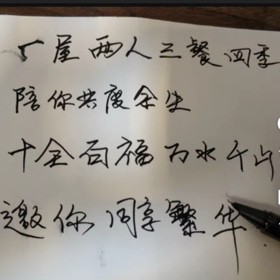 一屋两人三餐四季
陪你共度余生
十全百福万水千山
邀你同享繁华